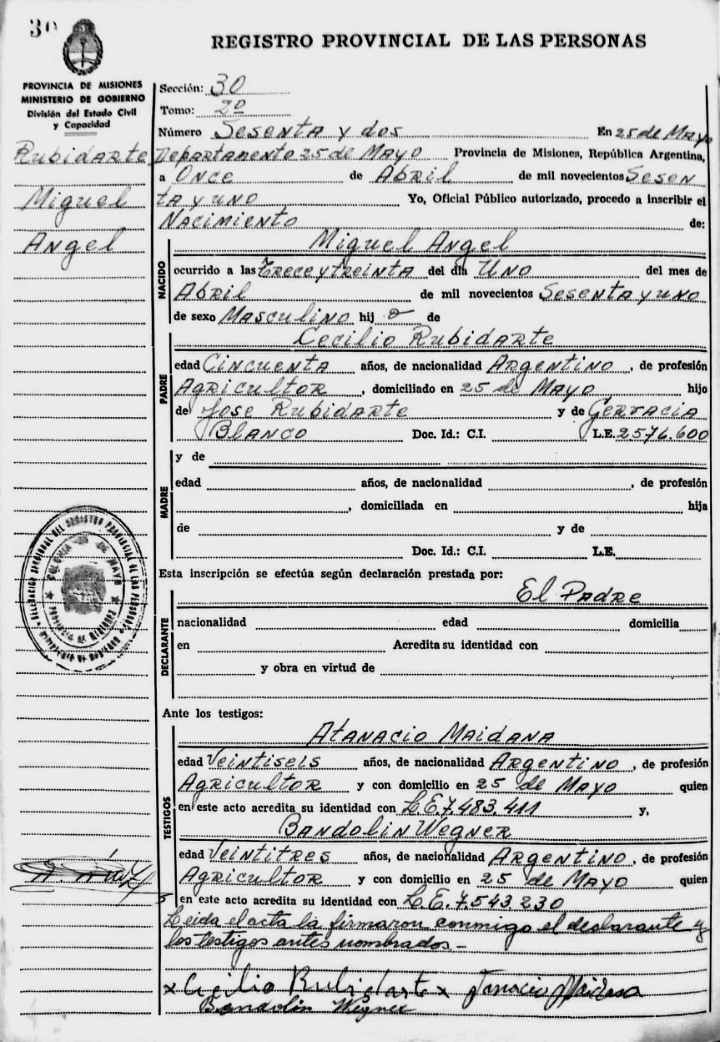 30
REGISTRO PROVINCIAL DE LAS PERSONAS
PROVINCIA DE MISIONES
MINISTERIO DE GOBIERNO
División del Estado Civil
y Capacidad
Rubidarte
Miguel
Angel
Sección: 30
Tomo: 2º
Número Sesenta y dos En 25 de Mayo
Departamento 25 de Mayo Provincia de Misiones, República Argentina,
a Once de Abril de mil novecientos Sesen
ta y uno Yo, Oficial Público autorizado, procedo a inscribir el
Nacimiento de:
NACIDO
Miguel Angel
ocurrido a las trece y treinta del día Uno del mes de
Abril de mil novecientos Sesenta y uno
de sexo Masculino hijo de
PADRE
Cecilio Rubidarte
edad Cincuenta años, de nacionalidad Argentino, de profesión
Agricultor, domiciliado en 25 de Mayo hijo
de Jose Rubidarte y de Gervacia
Blanco Doc. Id.: C.I. L.E. 2576.600
MADRE
y de
edad años, de nacionalidad , de profesión
, domiciliada en hija
de y de
Doc. Id.: C.I. L.E.
Esta inscripción se efectúa según declaración prestada por:
El Padre
DECLARANTE
nacionalidad edad domicilia
en Acredita su identidad con
y obra en virtud de
Ante los testigos:
TESTIGOS
Atanacio Maidana
edad Veintiseis años, de nacionalidad Argentino, de profesión
Agricultor y con domicilio en 25 de Mayo quien
en este acto acredita su identidad con L.E. 7.483.411 y,
Bandolin Wegner
edad Veintitres años, de nacionalidad Argentino, de profesión
Agricultor y con domicilio en 25 de Mayo quien
en este acto acredita su identidad con L.E. 7.543 230
Leida el acta la firmaron conmigo el declarante y
los testigos antes nombrados-
x Cecilio Rubidarte x Tanacio Maidana
Bandolin Wegner
COLONIA 25 DE MAYO
PROVINCIA DE MISIONES